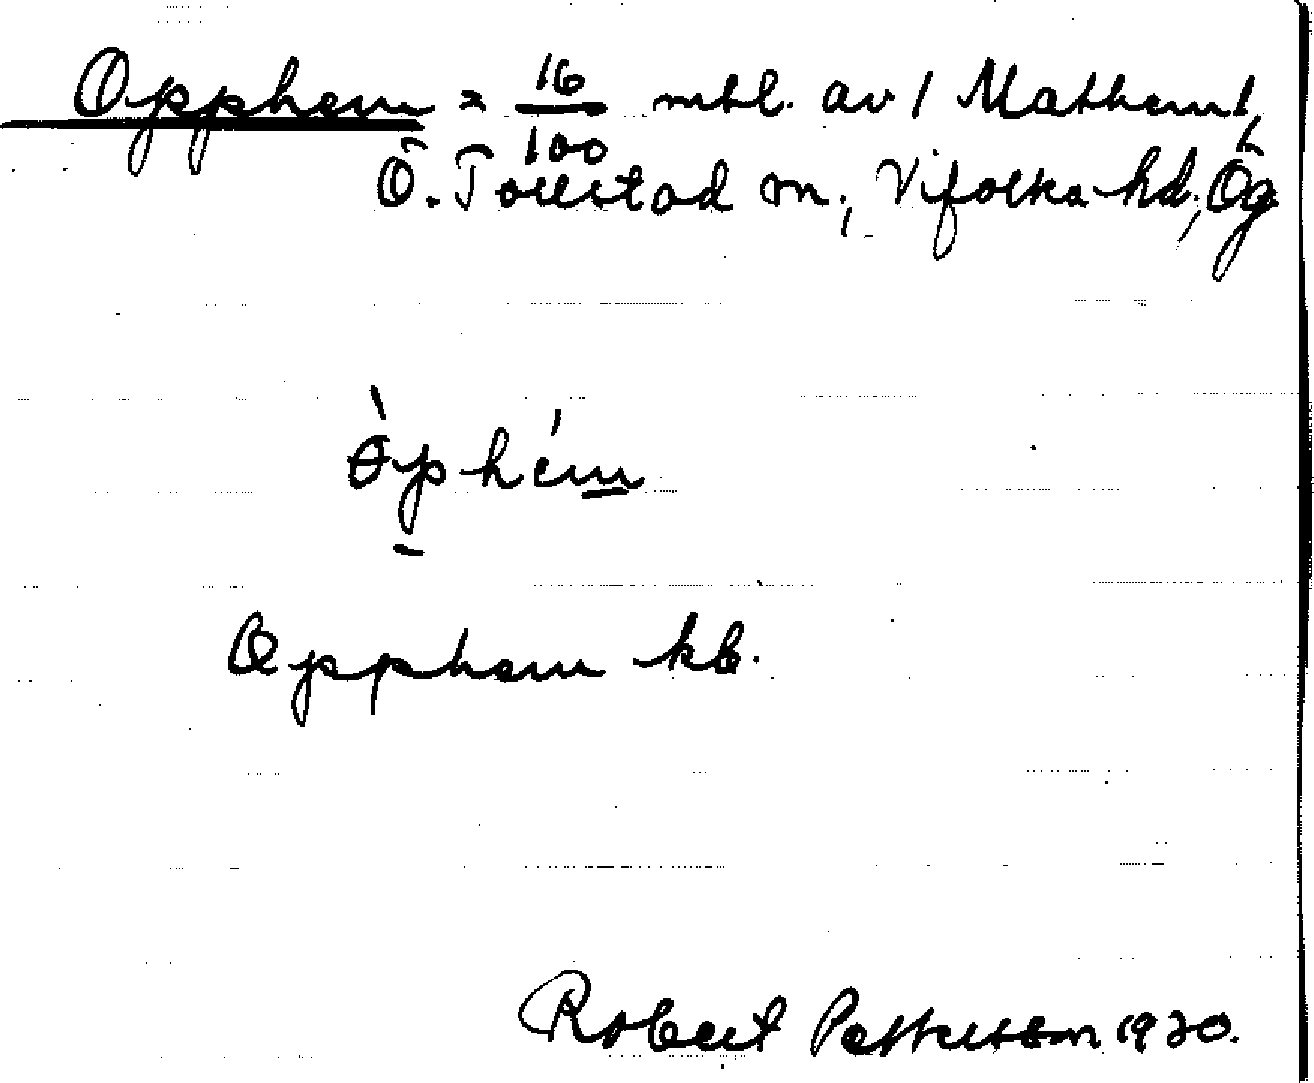 Opphem = 16/100 mtl. av 1 Mathem 1,
Ö. Tollstad sn., Vifolka hd, Ög
òphém
Opphem kb.
Robert Pettersson 1920.